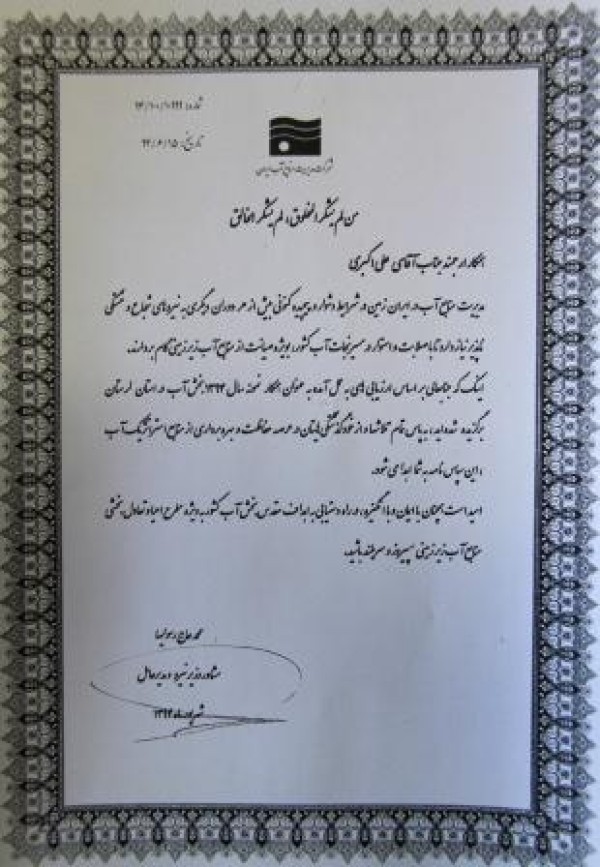 شماره: ۱۴/۱۰۰/۱۰۹۹۹
تاریخ: ۹۴/۶/۱۵
شرکت مدیریت منابع آب ایران
من لم یشکر المخلوق، لم یشکر الخالق
همکار ارجمند جناب آقای علی اکبری
مدیریت منابع آب در ایران زمین در شرایط دشوار و پیچیده کنونی بیش از هر دوران دیگری به نیروهای شجاع و خستگی
ناپذیر نیاز دارد تا با صلابت و استوار در مسیر نجات آب کشور، بویژه صیانت از منابع آب زیرزمینی گام بردارند.
اینک که جنابعالی بر اساس ارزیابی های به عمل آمده به عنوان همکار نمونه سال ۱۳۹۴ بخش آب در استان لرستان
برگزیده شده‌اید، به پاس تمام تلاشها و از خودگذشتگی‌هایتان در عرصه حفاظت و بهره برداری از منابع استراتژیک آب
، این سپاس نامه به شما اهدا می شود.
امید است همچنان با ایمان و با انگیزه، در راه دستیابی به اهداف مقدس بخش آب کشور به ویژه طرح احیاء و تعادل بخشی
منابع آب زیرزمینی پیروز و سربلند باشید.
محمد حاج رسولیها
مشاور وزیر نیرو و مدیرعامل
شهریورماه ۱۳۹۴